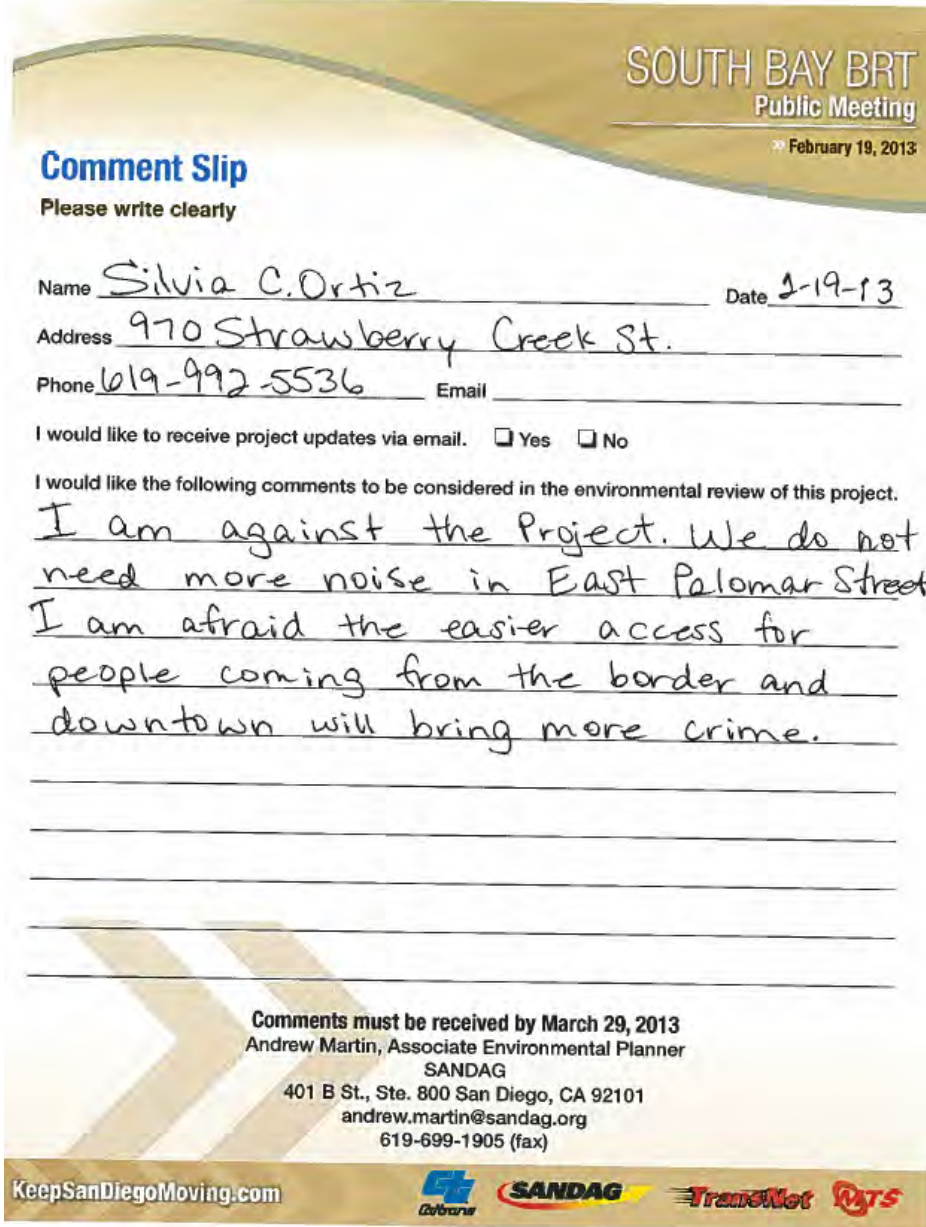 SOUTH BAY BRT
Public Meeting
» February 19, 2013
Comment Slip
Please write clearly
Name Silvia C. Ortiz Date 2-19-13
Address 970 Strawberry Creek St.
Phone 619-992-5536 Email
I would like to receive project updates via email. ❑ Yes ❑ No
I would like the following comments to be considered in the environmental review of this project.
I am against the Project. We do not
need more noise in East Palomar Street
I am afraid the easier access for
people coming from the border and
downtown will bring more crime.
Comments must be received by March 29, 2013
Andrew Martin, Associate Environmental Planner
SANDAG
401 B St., Ste. 800 San Diego, CA 92101
andrew.martin@sandag.org
619-699-1905 (fax)
KeepSanDiegoMoving.com Caltrans SANDAG TransNet MTS